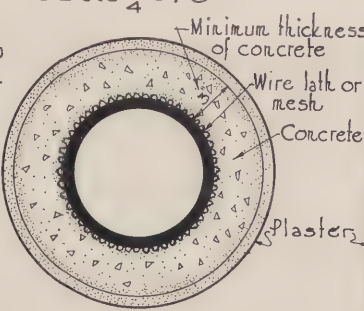 Minimum thickness
of concrete
3"
Wire lath or
mesh
Concrete
Plaster